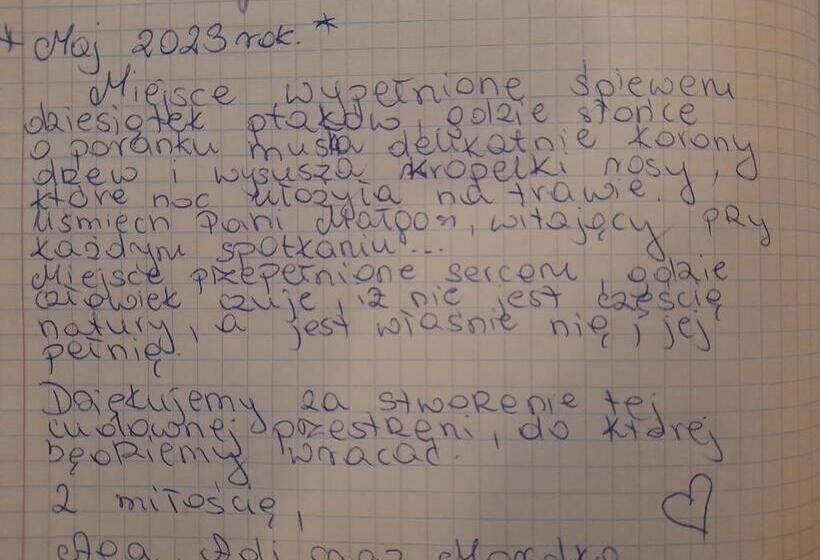 * Maj 2023 rok. *
Miejsce wypełnione śpiewem
dziesiątek ptaków, gdzie słońce
o poranku muska delikatnie korony
drzew i wysusza kropelki rosy,
które noc ułożyła na trawie.
Uśmiech Pani Małgosi, witający przy
każdym spotkaniu...
Miejsce przepełnione sercem, gdzie
człowiek czuje, iż nie jest częścią
natury, a jest właśnie nią, jej
pełnią.
Dziękujemy za stworzenie tej
cudownej przestrzeni, do której
będziemy wracać.
Z miłością,